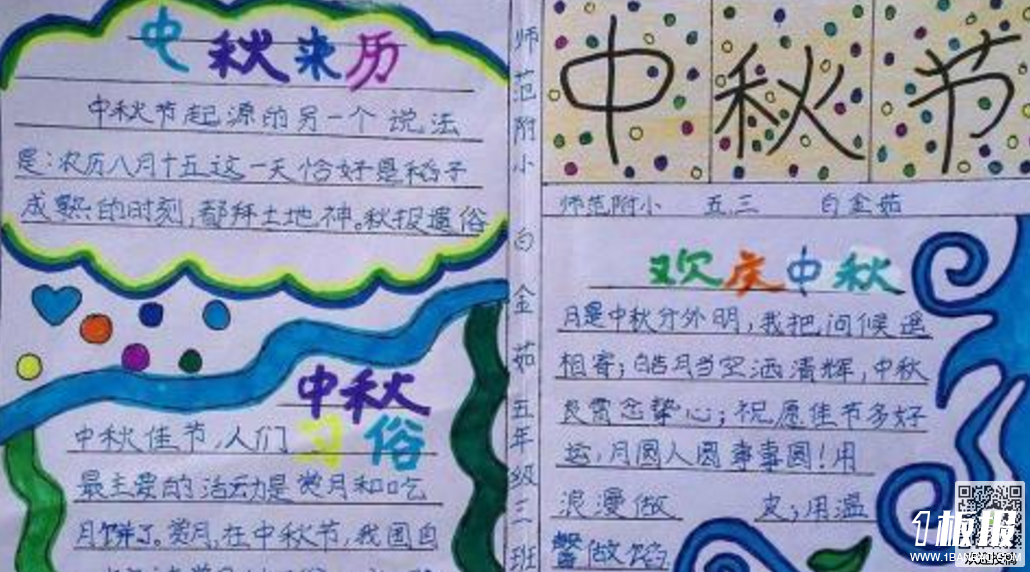 中秋来历
中秋节起源的另一个说法
是:农历八月十五这一天恰好是稻子
成熟的时刻,都拜土地神。秋报遗俗
中秋
习俗
中秋佳节,人们
最主要的活动是赏月和吃
月饼了。赏月,在中秋节,我国自
师范附小 白金茹 五年级三班
中秋节
师范附小 五.三 白金茹
欢庆中秋
月是中秋分外明,我把问候遥
相寄;皓月当空洒清辉,中秋
良宵念挚心;祝愿佳节多好
运,月圆人圆事事圆!用
浪漫做 皮;用温
馨做馅
1板报
WWW.1BANBAO.COM